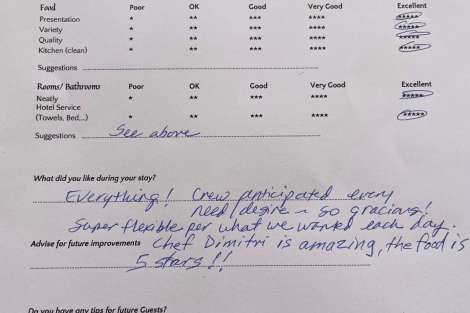 Food Poor OK Good Very Good Excellent
Presentation * ** *** **** *****
Variety * ** *** **** *****
Quality * ** *** **** *****
Kitchen (clean) * ** *** **** *****
Suggestions
Rooms/ Bathrooms Poor OK Good Very Good Excellent
Neatly * ** *** **** *****
Hotel Service
(Towels, Bed,...) * ** *** **** *****
Suggestions See above
What did you like during your stay?
Everything! Crew anticipated every
need/desire ~ so gracious!
Super flexible per what we wanted each day.
Advise for future improvements Chef Dimitri is amazing, the food is
5 stars!!
Do you have any tips for future Guests?